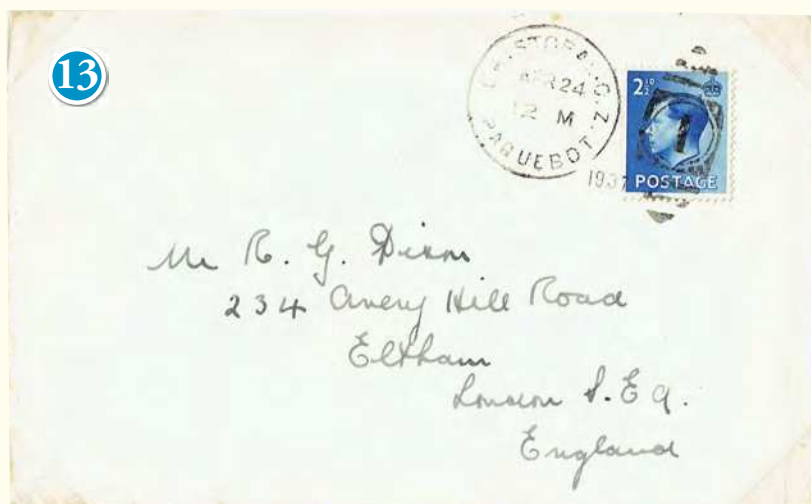 13
CRISTOBAL. C. Z.
APR 24
12 M
PAQUEBOT.
1937
2½D
POSTAGE
Mr R. G. Dixon
234 Avery Hill Road
Eltham
London S.E 9.
England